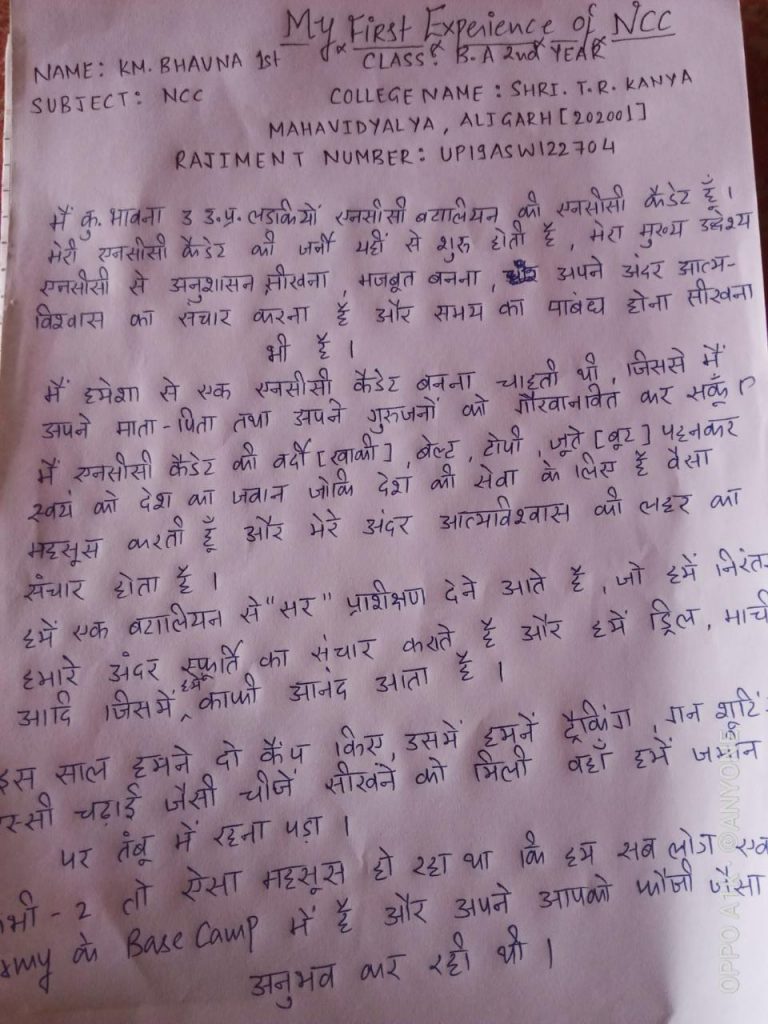 My First Experience of NCC
NAME: KM. BHAVNA 1st CLASS: B.A 2nd YEAR
SUBJECT: NCC COLLEGE NAME: SHRI. T.R. KANYA
MAHAVIDYALYA, ALIGARH [202001]
RAJIMENT NUMBER: UP19ASW122704
मैं कु. भावना 3 उ.प्र. लडकियों एनसीसी बटालियन की एनसीसी कैडेट हूँ।
मेरी एनसीसी कैडेट की जर्नी यहीं से शुरू होती है, मेरा मुख्य उद्देश्य
एनसीसी से अनुशासन सीखना, मजबूत बनना, अपने अंदर आत्म-
विश्वास का संचार करना है और समय का पाबंध होना सीखना
भी है।
मैं हमेशा से एक एनसीसी कैडेट बनना चाहती थी, जिससे मैं
अपने माता-पिता तथा अपने गुरुजनों को गौरवानवित कर सकूँ।
मैं एनसीसी कैडेट की वर्दी [खाकी], बेल्ट, टोपी, जूते [बूट] पहनकर
स्वयं को देश का जवान जोकि देश की सेवा के लिए है वैसा
महसूस करती हूँ और मेरे अंदर आत्मविश्वास की लहर का
संचार होता है।
हमें एक बटालियन से "सर" प्राशीक्षण देने आते है, जो हमें निरंतर
हमारे अंदर स्फूर्ति का संचार कराते है और हमें ड्रिल, मार्च
आदि जिसमें हमें काफी आनंद आता है।
इस साल हमने दो कैंप किए, उसमें हमनें ट्रैकिंग, गन शूटिं
रस्सी चढ़ाई जैसी चीजें सीखने को मिली वहाँ हमें जमीन
पर तंबू में रहना पड़ा।
कभी-2 तो ऐसा महसूस हो रहा था कि हम सब लोग एक
Army के Base Camp में है और अपने आपको फौजी जैसा
अनुभव कर रही थी।
OPPO A15 · @ANYONE